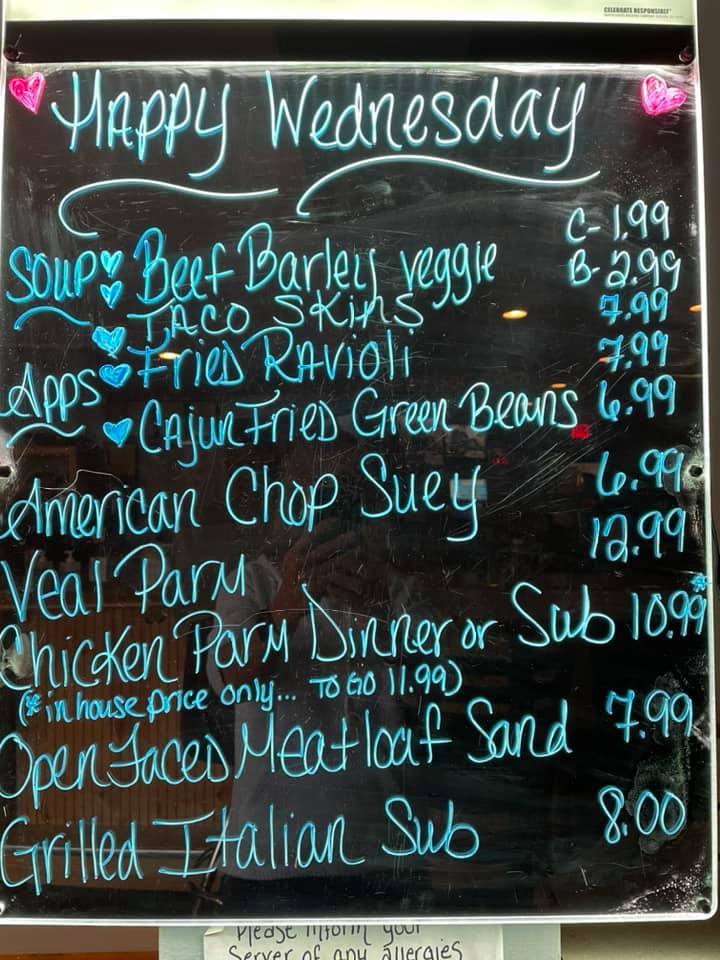 CELEBRATE RESPONSIBLY
Happy Wednesday
Soup Beef Barley veggie C- 1.99
B- 2.99
Taco Skins 7.99
Apps Fried Ravioli 7.99
Cajun Fried Green Beans 6.99
American Chop Suey 6.99
Veal Parm 12.99
Chicken Parm Dinner or Sub 10.99*
(*in house price only... To Go 11.99)
Open Faced Meatloaf Sand 7.99
Grilled Italian Sub 8.00
Please inform your
Server of any allergies